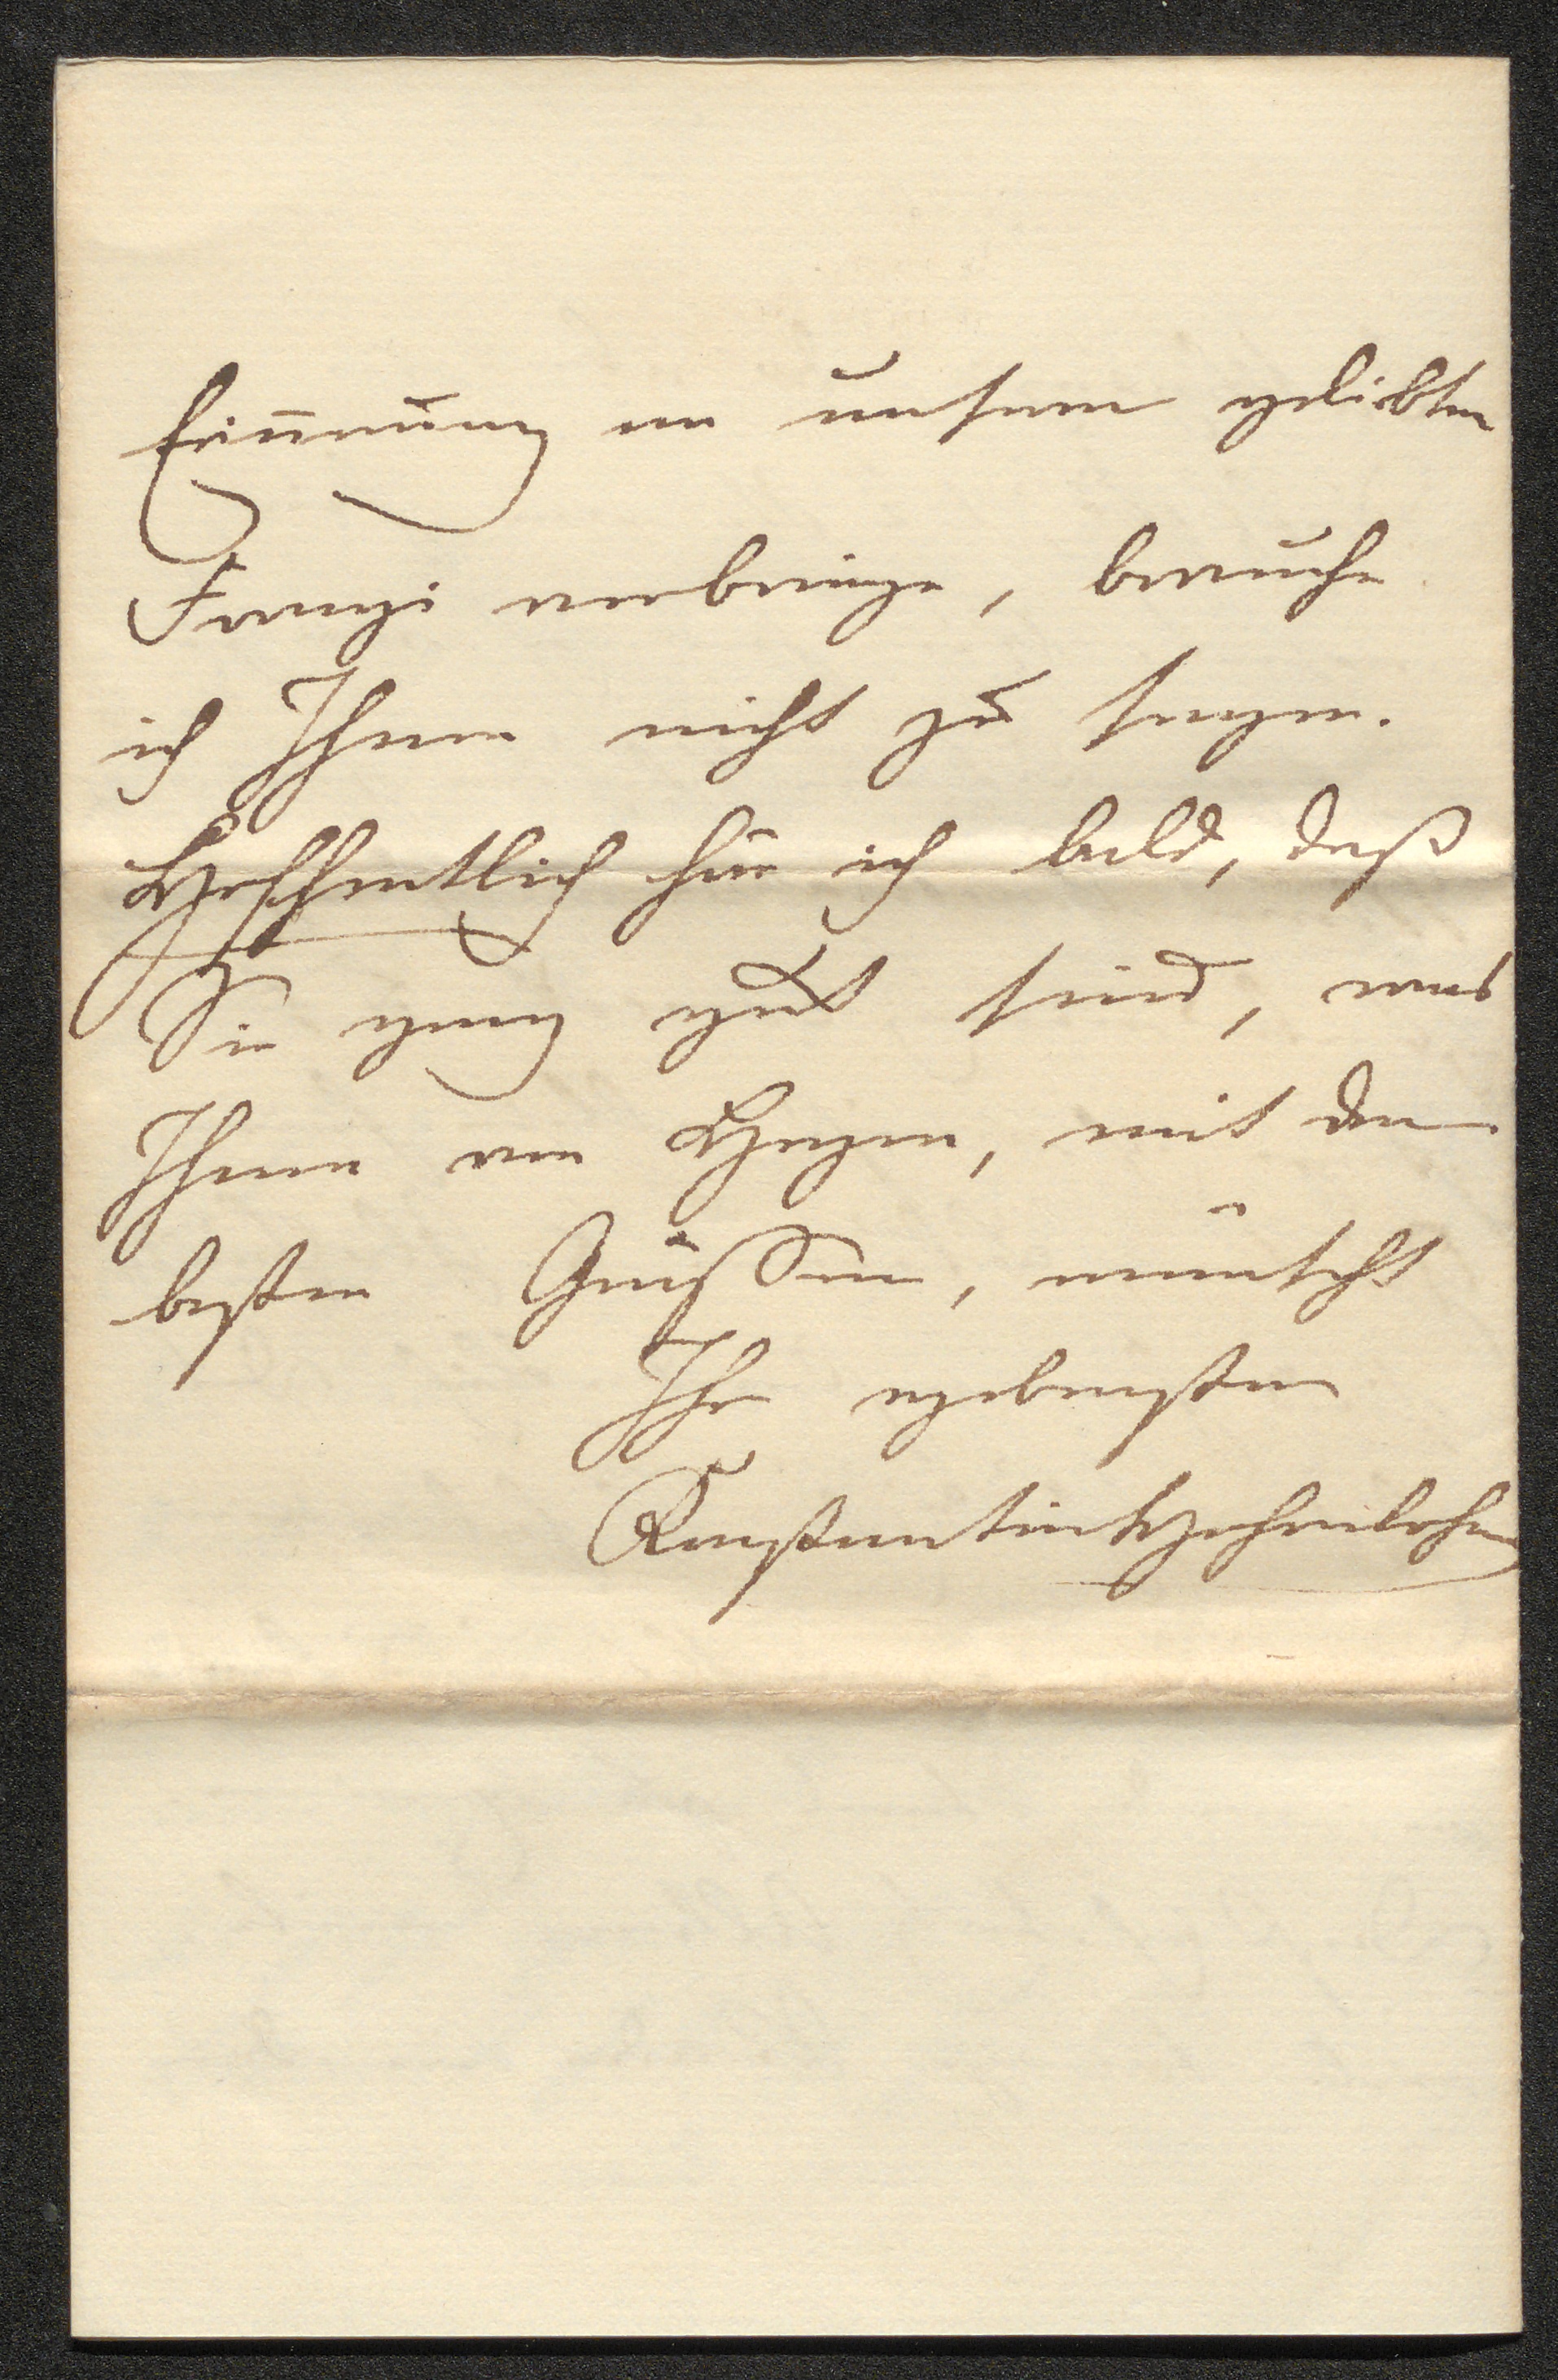 Erinnerung an unseren geliebten
Franzi verbringe, brauche
ich Ihnen nicht zu sagen.
Hoffentlich höre ich bald, daß
Sie ganz gut sind, was
Ihnen von Herzen, mit den
besten Grüssen, wünscht
Ihr ergebenster
Konstantin Hohenlohe